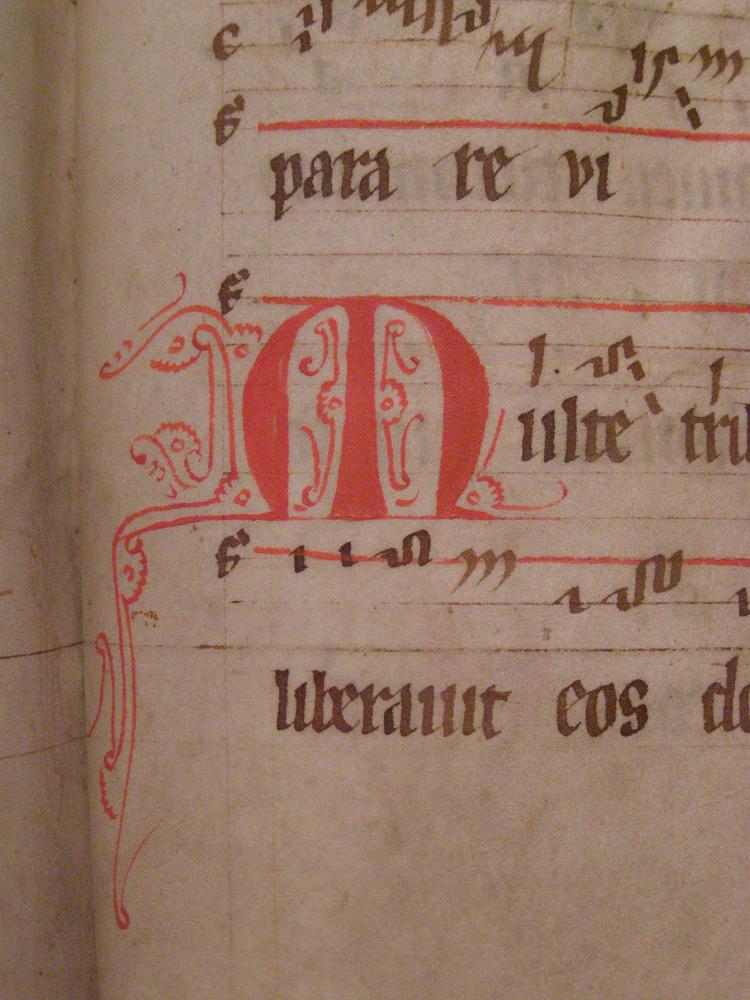 para re vi
Multe tri
liberauit eos